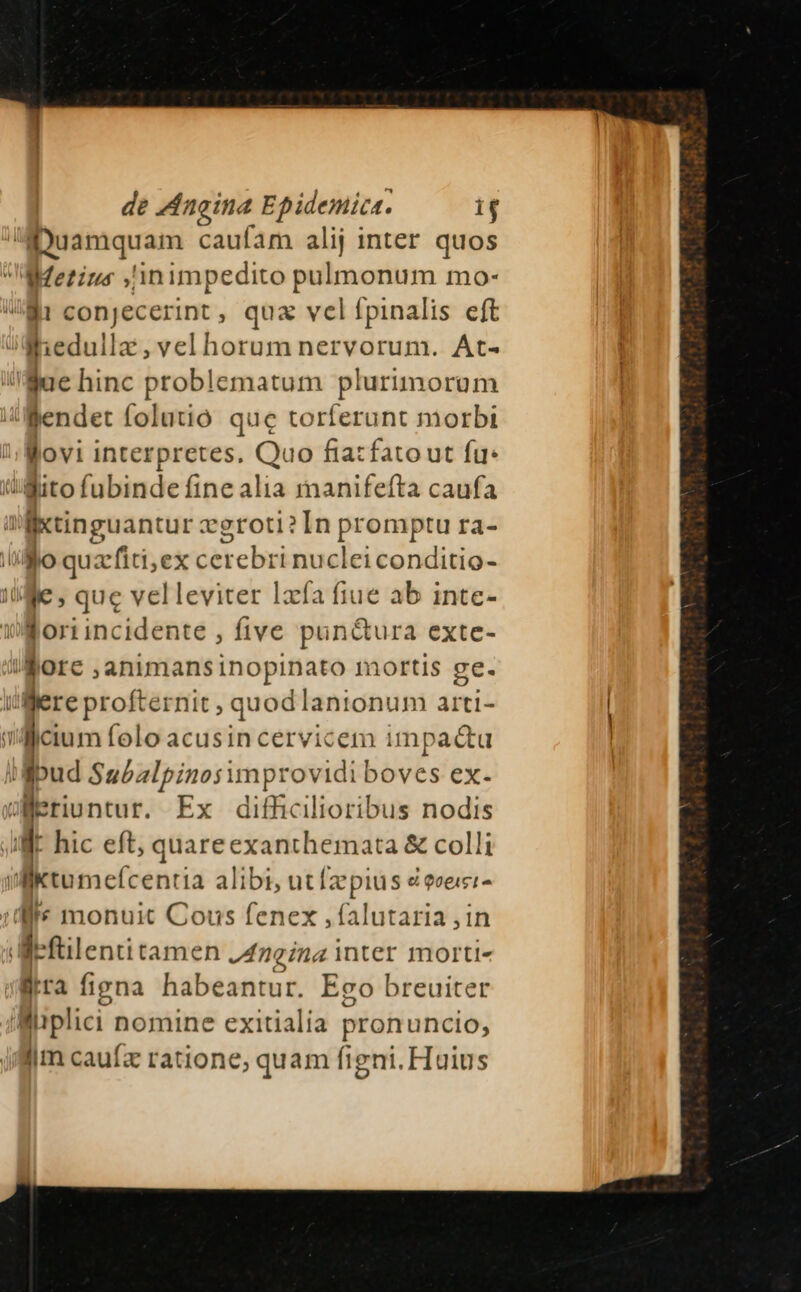 de Angina Epidemica. 15
Quamquam cauſam alij inter quos
Metius, in impedito pulmonum mo-
conjecerint, quæ vel ſpinalis eſt
medullæ, vel horum nervorum. At-
que hinc problematum plurimorum
pendet ſolutio que torſerunt morbi
novi interpretes. Quo fiat fato ut ſu-
bito ſubinde ſine alia manifeſta cauſa
extinguantur ægroti? In promptu ra-
tio quæſiti, ex cerebri nuclei conditio-
ne, que vel leviter læſa ſiue ab inte-
riori incidente, ſive punctura exte-
riore, animans inopinato mortis ge-
nere proſternit, quod lanionum arti-
ficium ſolo acus in cervicem impactu
apud Subalpinos improvidi boves ex-
periuntur. Ex difficilioribus nodis
hic eſt, quare exanthemata & colli
tumeſcentia alibi, ut ſæpius
monuit Cous ſenex, ſalutaria, in
peſtilenti tamen Angina inter morti-
fera ſigna habeantur. Ego breuiter
duplici nomine exitialia pronuncio,
cauſæ ratione, quam ſigni. Huius